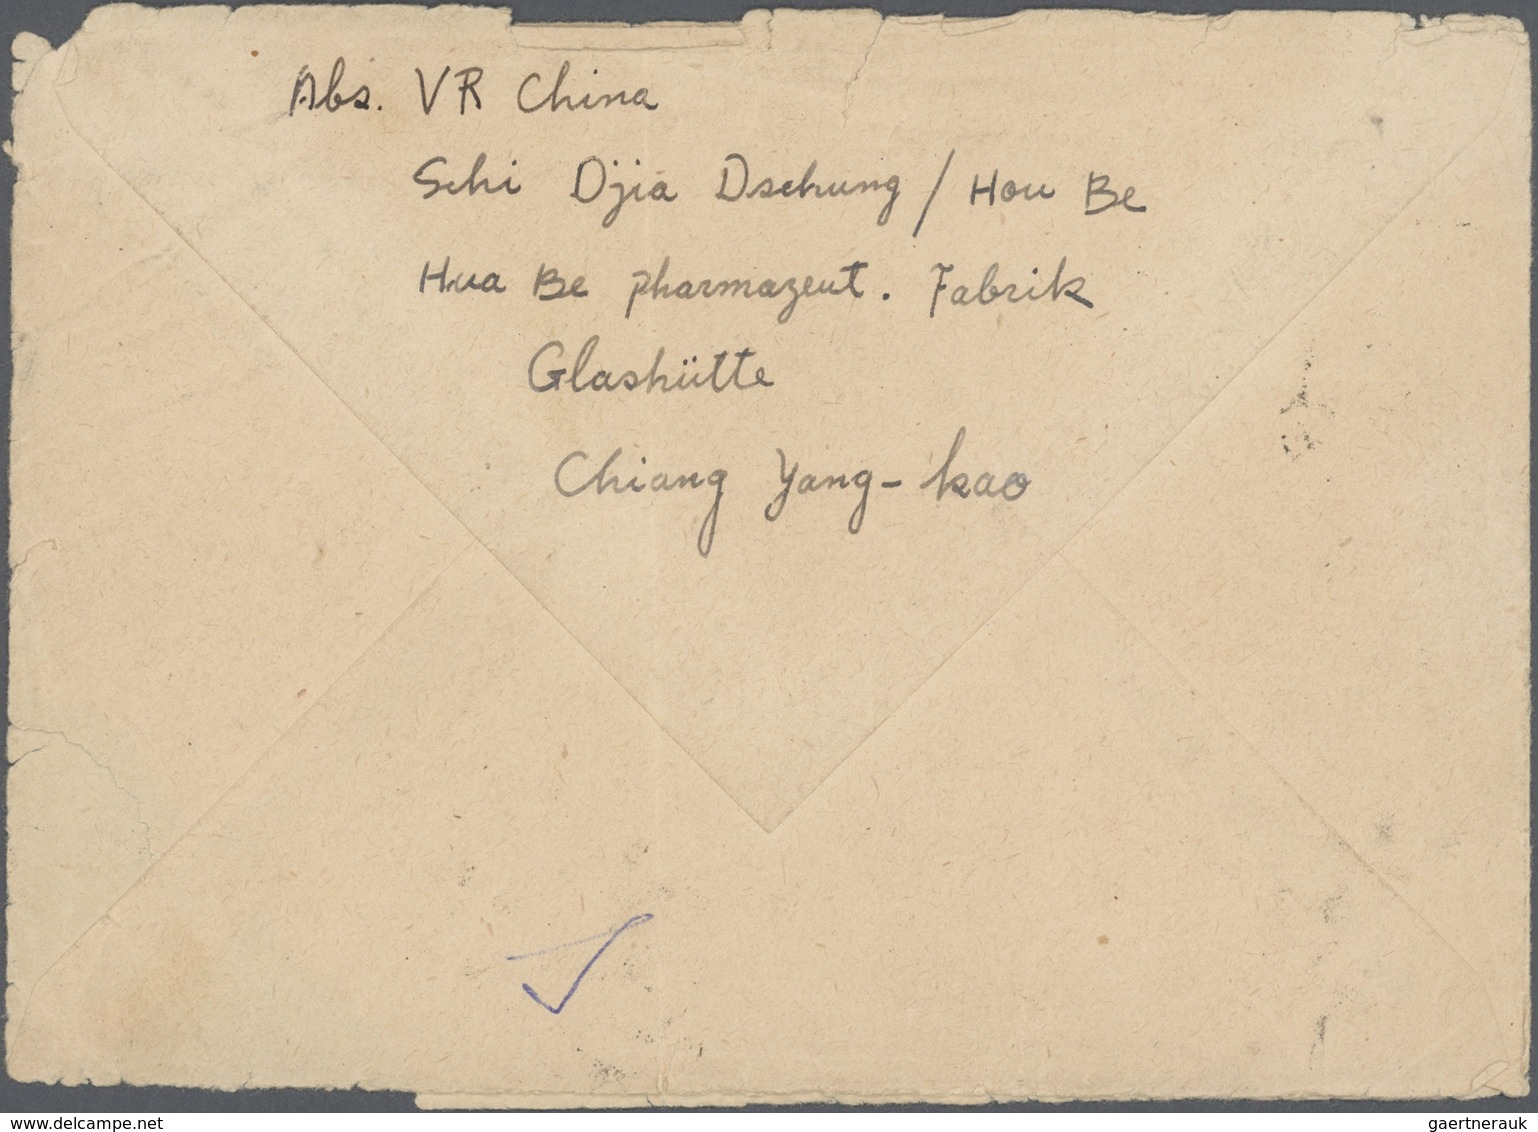 Abs. VR China
Schi Djia Dschung / Hou Be
Hua Be pharmazeut. Fabrik
Glashütte
Chiang Yang-kao
www.delcampe.net
gaertnerauk